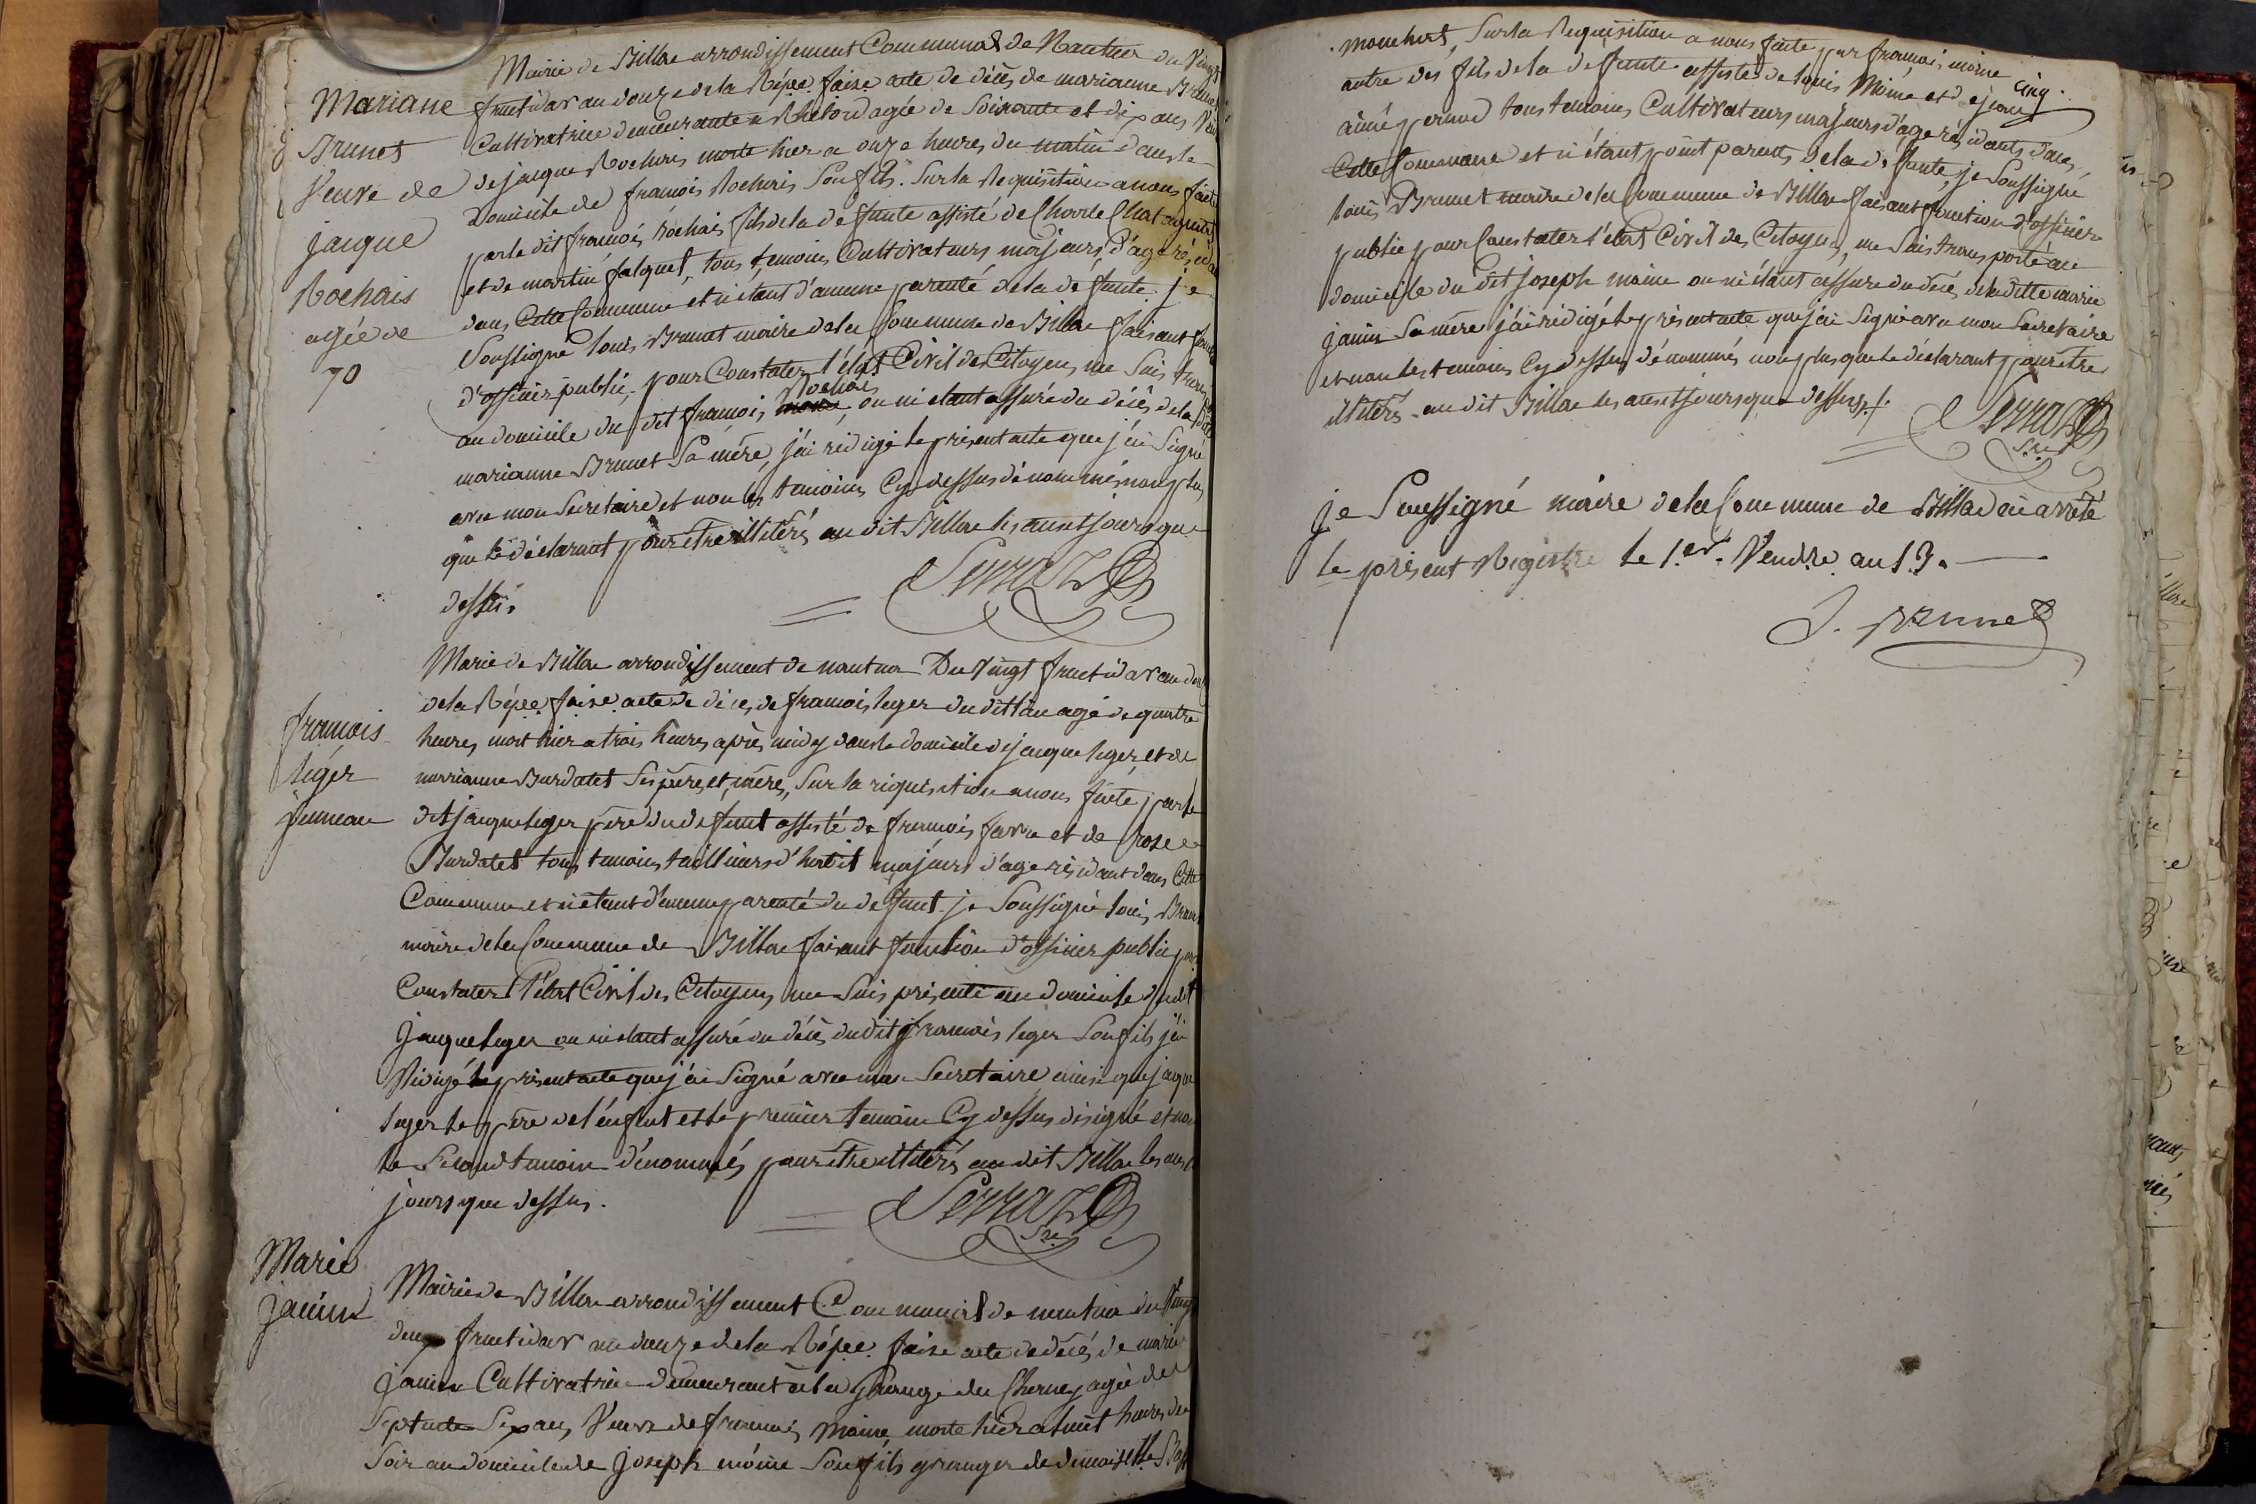 Mairie de Billac arrondissement Communal de Nantua du Vingt
Mariane
Brunet
Veuve de
jacque
Rochais
agée de
70
fructidor an douze de la Répce. faise. acte de décès de marianne Brunet
Cultivatrice demeurante a agée de Soixante et dix ans Veuve
de jacque Rochais morte hier a onze heures du matin dans le
Domicile de francois Rochais Son fils. Sur la Requisition a nous faite
par le dit francois Rochais fils de la defunte assisté de Charle
et de martin falquet, tous temoins Cultivateurs majeurs d'age résidants
dans Cette Commune et n'étant d'aucune parenté de la défunte. je
Soussigné louis Brunet maire de la Commune de Billac faisant fonction
d'officier public, pour Constater l'état Civil des Citoyens, me Suis
Rochais
au domicile du dit francois, ou m'etant assuré du décès de la ditte
marianne Brunet Sa mére, j'ai rédigé le présent acte que j'ai Signé
avec mon Secretaire et non les temoins Cy dessus dénommés non plus
que le déclarant pour étre illitérés au dit Billac les an et jours que
dessus.
Serraz
francois
leger
jumeau
Marie de Billac arrondissement de nantua Du Vingt fructidor an
de la Répce. faise. acte de déces de francois leger du dit lieu agé de quatre
heures, mort hier a trois heures après midy dans le domicile de jacque leger, et de
marrianne Burdalet Ses pére, et mére, Sur la riquisition a nous faite, par le
dit jacque leger pére du defunt assisté de francois favre et de Rose
Burdalet tous temoins tailliurs d'habit majeurs d'age résidant dans Cette
Commune et n'étant d'aucune parenté du defunt. je Soussigné louis
maire de la Commune de Billac faisant fonction d'officier public pour
Constater l'état Civil des Citoyens, me Suis présenté au domicile du dit
jacque leger ou m'etant assuré du décès du dit francois leger Son fils j'ai
Rédigé le présent acte que j'ai Signé avec mon Secretaire ainsi que jacque
leger le pére de l'enfant et le premier temoin Cy dessus désigné et non
le Second temoin dénommés pour étre illitérés au dit Billac les an et
jours que dessus.
Serraz
Sre
Marie
janin
Mairie de Billac arrondissement Communal de nantua du Vingt
deux fructidor an douze de la Répce. faise acte de décés de marie
janin Cultivatrice demeurant à la grange du agée de
Septante Six ans, Veuve de francois moine, morte hier a huit heures du
Soir au domicile de joseph moine Son fils granger de demoiselle
cinq.
Sur la Requisition a nous faite par francois moine
autre des fils de la defunte assisté de louis Moine et de jean
aimé tous temoins Cultivateurs majeurs d'age résidants dans
Cette Commune et n'étant point parents de la defunte, je Soussigné
louis Brunet maire de la Commune de Billac faisant fonction d'officier
public pour Constater l'état Civil des Citoyens, me Suis transporté au
domicile du dit joseph moine ou m'étant assuré du décés de la ditte marie
janin Sa mére j'ai rédigé le présent acte que j'ai Signé avec mon Secretaire
et non les temoins Cy dessus dénommés non plus que le déclarant pour étre
illitérés au dit Billac les an et jours que dessus.
Serraz
Sre
je Soussigné maire de la Commune de Billac ai arrété
le présent Registre le 1.er Vend.re an 13.
J. Brunet